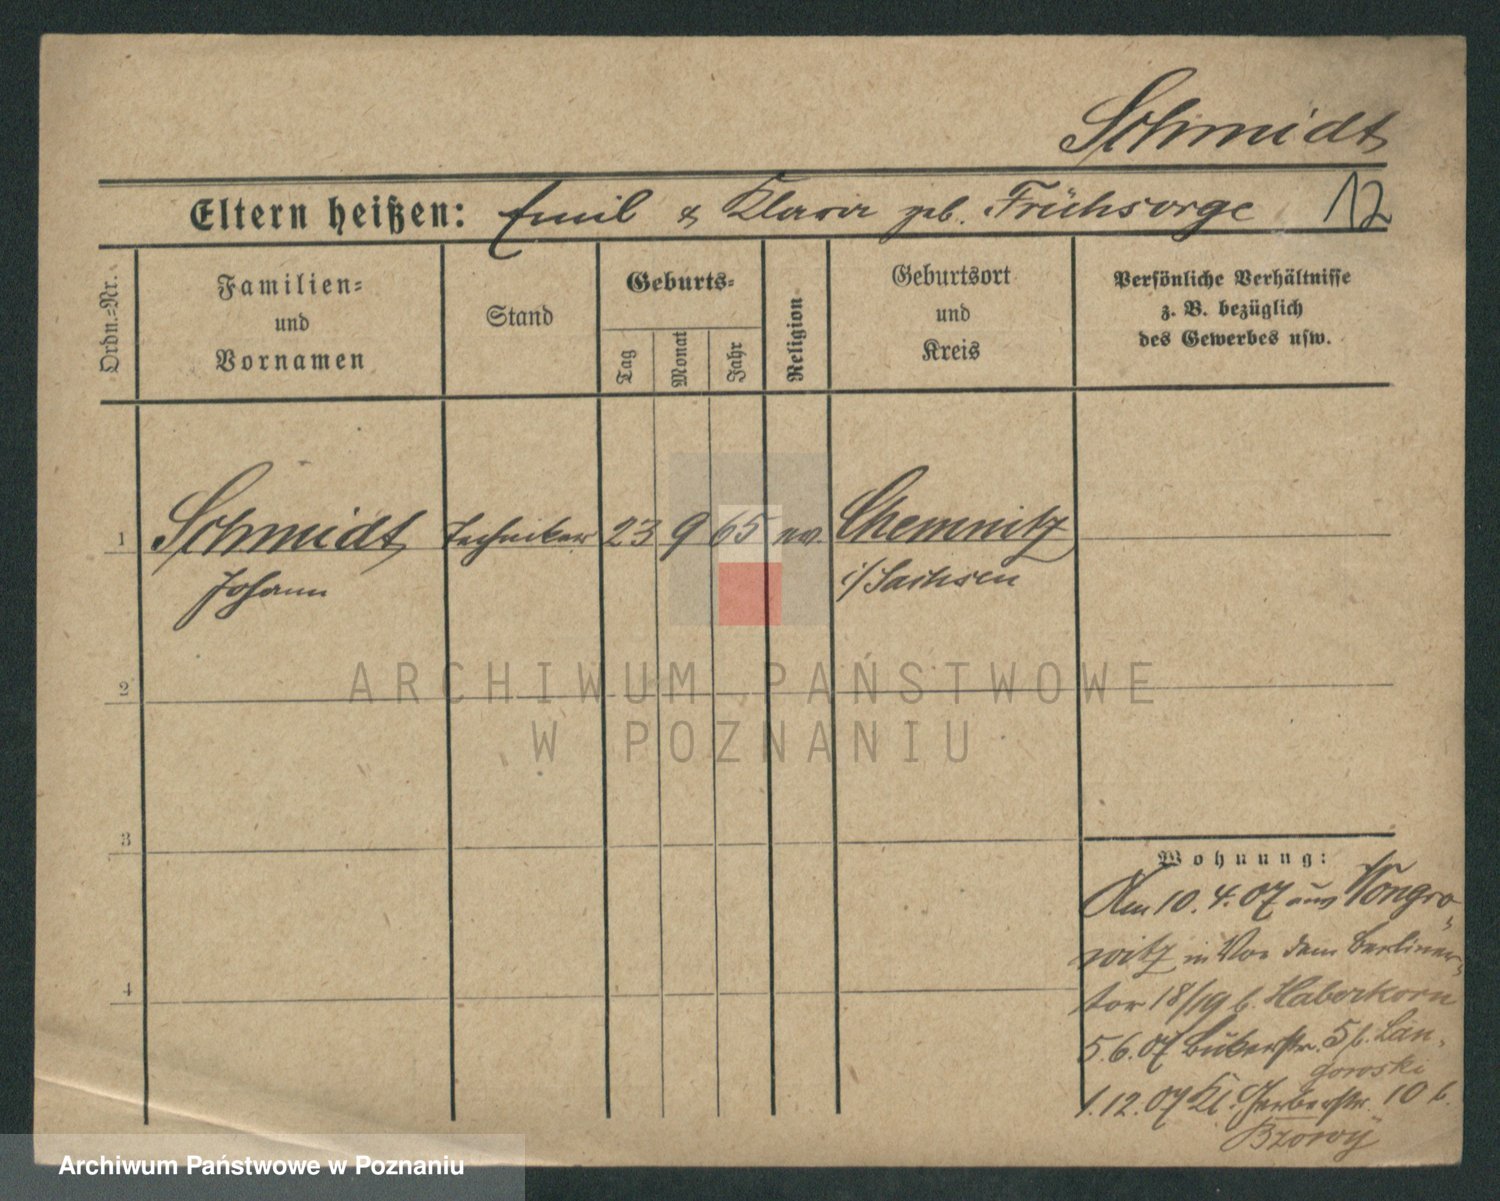 Schmidt
Eltern heißen: Emil & Klara geb. Frühsorge 12
Ordn.=Nr.
Familien=
und
Vornamen
Stand
Geburts=
Tag
Monat
Jahr
Religion
Geburtsort
und
Kreis
Persönliche Verhältnisse
z. B. bezüglich
des Gewerbes usw.
1 Schmidt Techniker 23 9 65 ev. Chemnitz
Johann i/Sachsen
2
ARCHIWUM PAŃSTWOWE
W POZNANIU
3
4
Wohnung:
Am 10.4.07 aus Wongro-
witz in Vor dem Berliner-
tor 18/19 b. Haberkorn
5.6.07 5 b. Lan-
gowski
1.12.07 Kl. Gerberstr. 10 b.
Archiwum Państwowe w Poznaniu